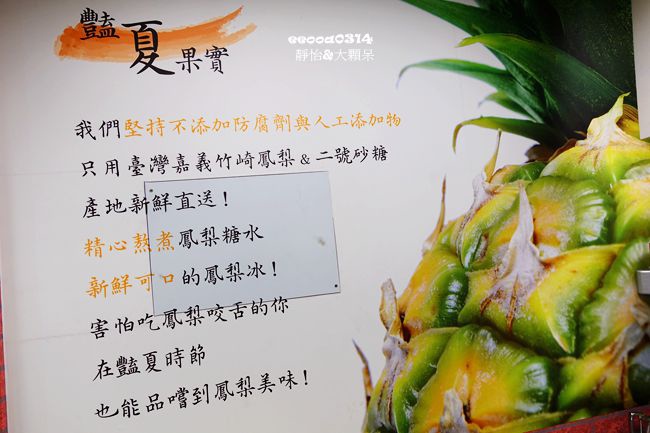 豔夏果實
eecca0314
靜怡&大顆呆
我們堅持不添加防腐劑與人工添加物
只用臺灣嘉義竹崎鳳梨&二號砂糖
產地新鮮直送!
精心熬煮鳳梨糖水
新鮮可口的鳳梨冰!
害怕吃鳳梨咬舌的你
在豔夏時節
也能品嚐到鳳梨美味!